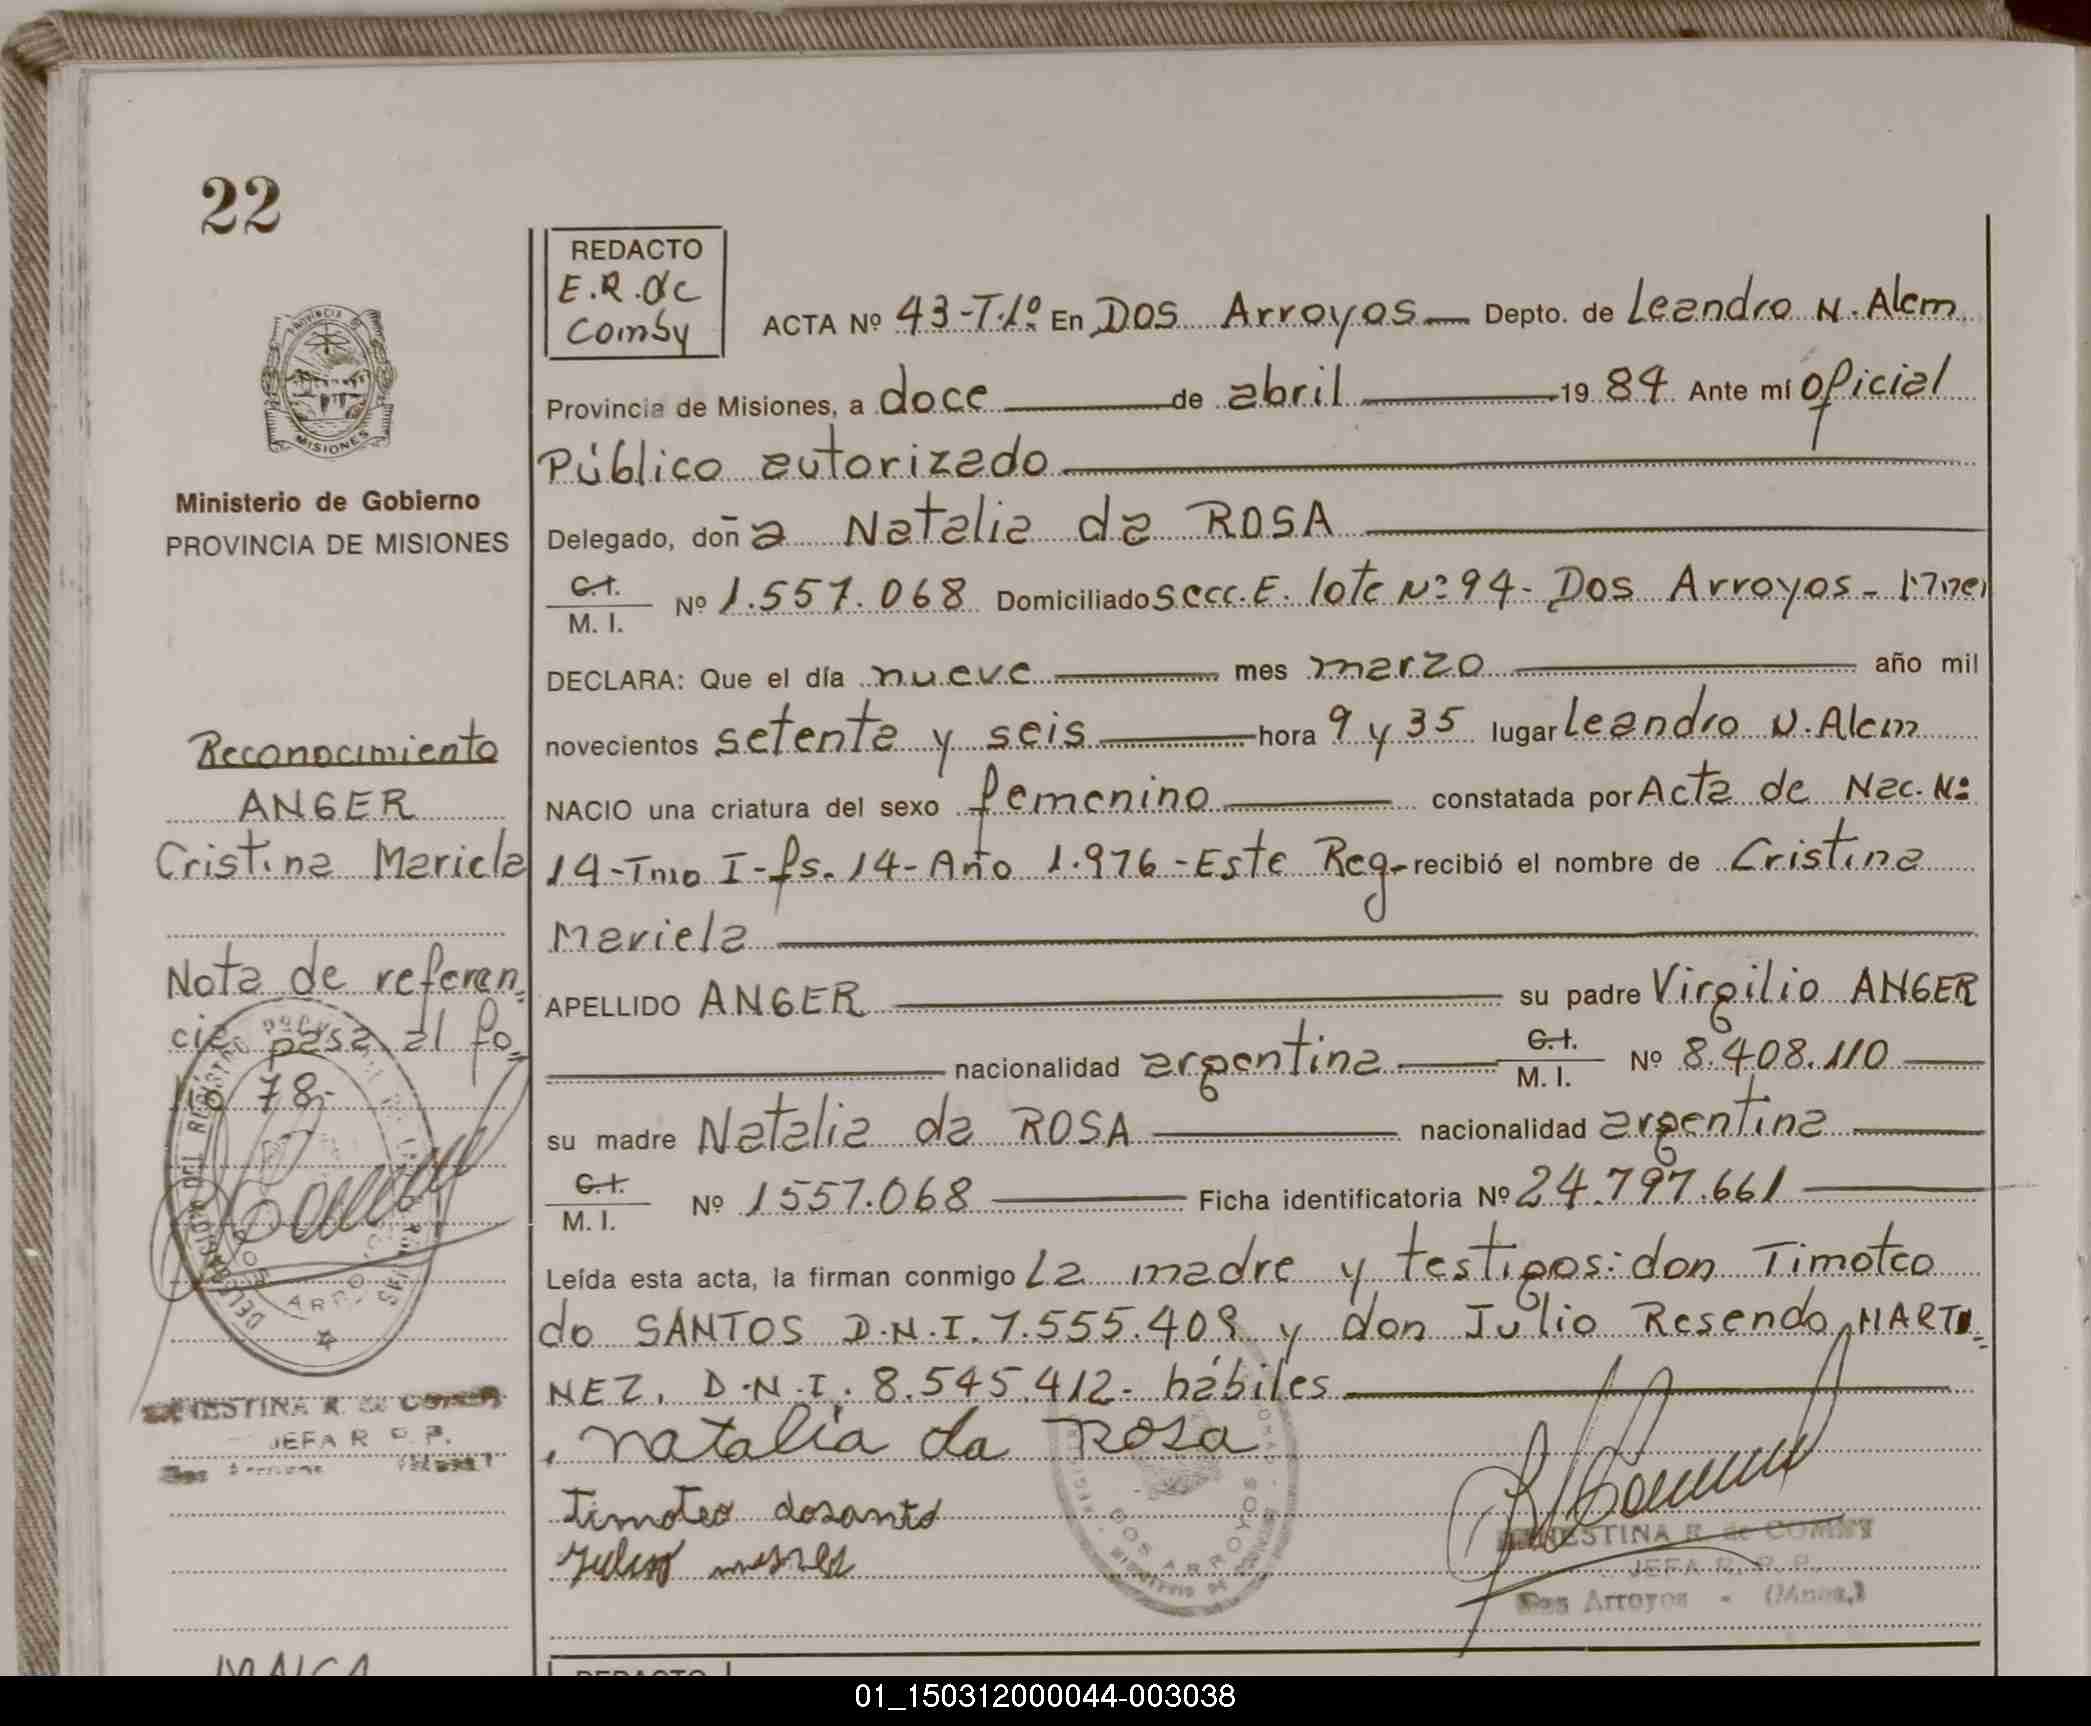 22
PROVINCIA DE
MISIONES
Ministerio de Gobierno
PROVINCIA DE MISIONES
Reconocimiento
ANGER
Cristina Mariela
Nota de referen
cia pasa al fo
lio 78-
DELEGACION DEL REGISTRO
DOS ARROYOS
ERNESTINA R. de COMBY
JEFA R. P. P.
Dos Arroyos
REDACTO
E.R. de
Comby
ACTA Nº 43-T.1º. En DOS Arroyos Depto. de Leandro N. Alem
Provincia de Misiones, a doce de abril 1984 Ante mí oficial
Público autorizado
Delegado, doña Natalia da ROSA
C.I.
M. I. Nº 1.557.068 Domiciliado Secc. E. lote Nº 94- Dos Arroyos - Mnes
DECLARA: Que el día nueve mes marzo año mil
novecientos setenta y seis hora 9 y 35 lugar Leandro N. Alem
NACIO una criatura del sexo femenino constatada por Acta de Nac. Nº
14-Tmo I-fs. 14-Año 1.976-Este Reg- recibió el nombre de Cristina
Mariela
APELLIDO ANGER su padre Virgilio ANGER
nacionalidad argentina C.I.
M. I. Nº 8.408.110
su madre Natalia da ROSA nacionalidad argentina
C.I.
M. I. Nº 1557.068 Ficha identificatoria Nº 24.797.661
Leída esta acta, la firman conmigo La madre y testigos: don Timoteo
do SANTOS D.N.I. 7.555.409 y don Julio Resendo MARTI
NEZ. D.N.I. 8.545.412- hábiles
Natalia da Rosa
Timoteo dosanto
DOS ARROYOS
ERNESTINA R. de COMBY
JEFA R. R. P.
Dos Arroyos - (Mnes.)
REDACTO
01_150312000044-003038